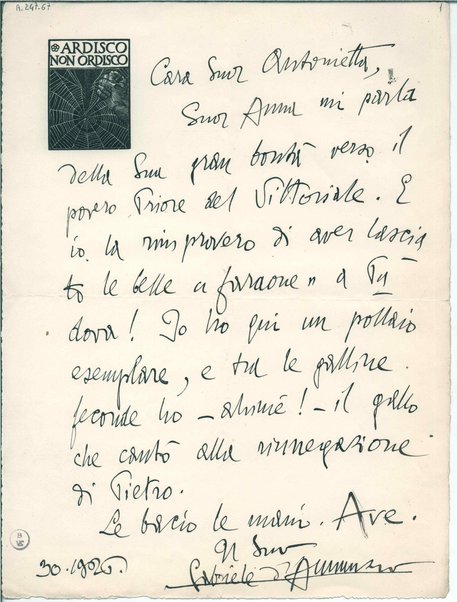 A.247.67
1
ARDISCO
NON ORDISCO
Cara Suor Antonietta,
Suor Anna mi parla
della Sua gran bontà verso il
povero Priore del Vittoriale. E
io la rimprovero di aver lascia
to le belle « faraone » a Pa
dova! Io ho qui un pollaio
esemplare, e tra le galline
feconde ho – ahimè! – il gallo
che cantò alla rinnegazione
di Pietro.
Le bacio le mani. Ave.
Il Suo
Gabriele d'Annunzio